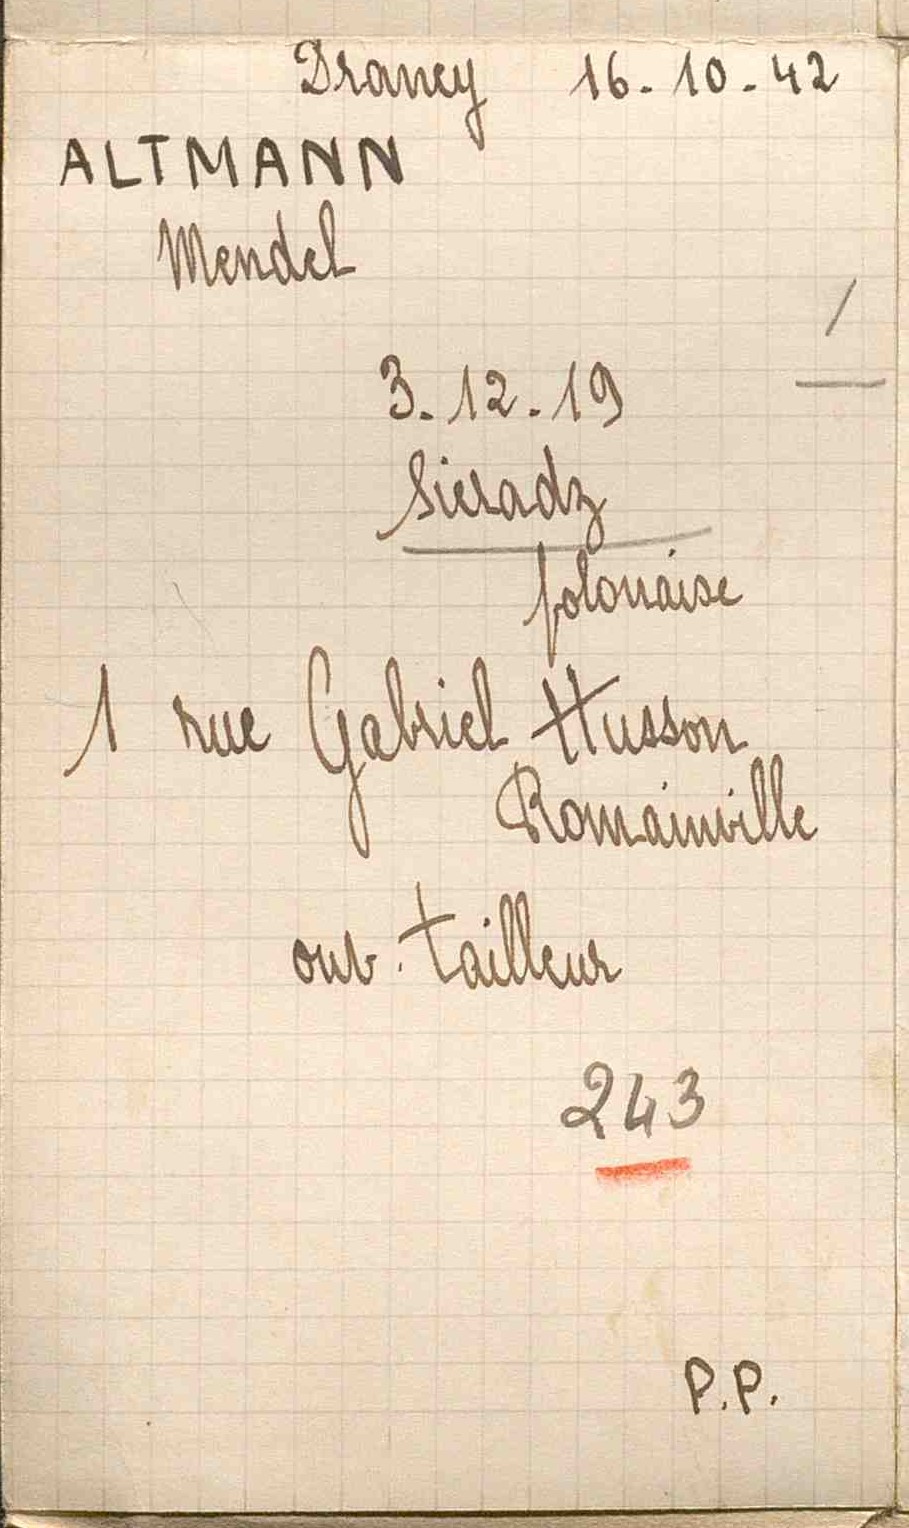 Drancy 16.10.42
ALTMANN
Mendel
/
3.12.19
Sieradz
polonaise
1 rue Gabriel Husson
Romainville
ouv. tailleur
243
P.P.